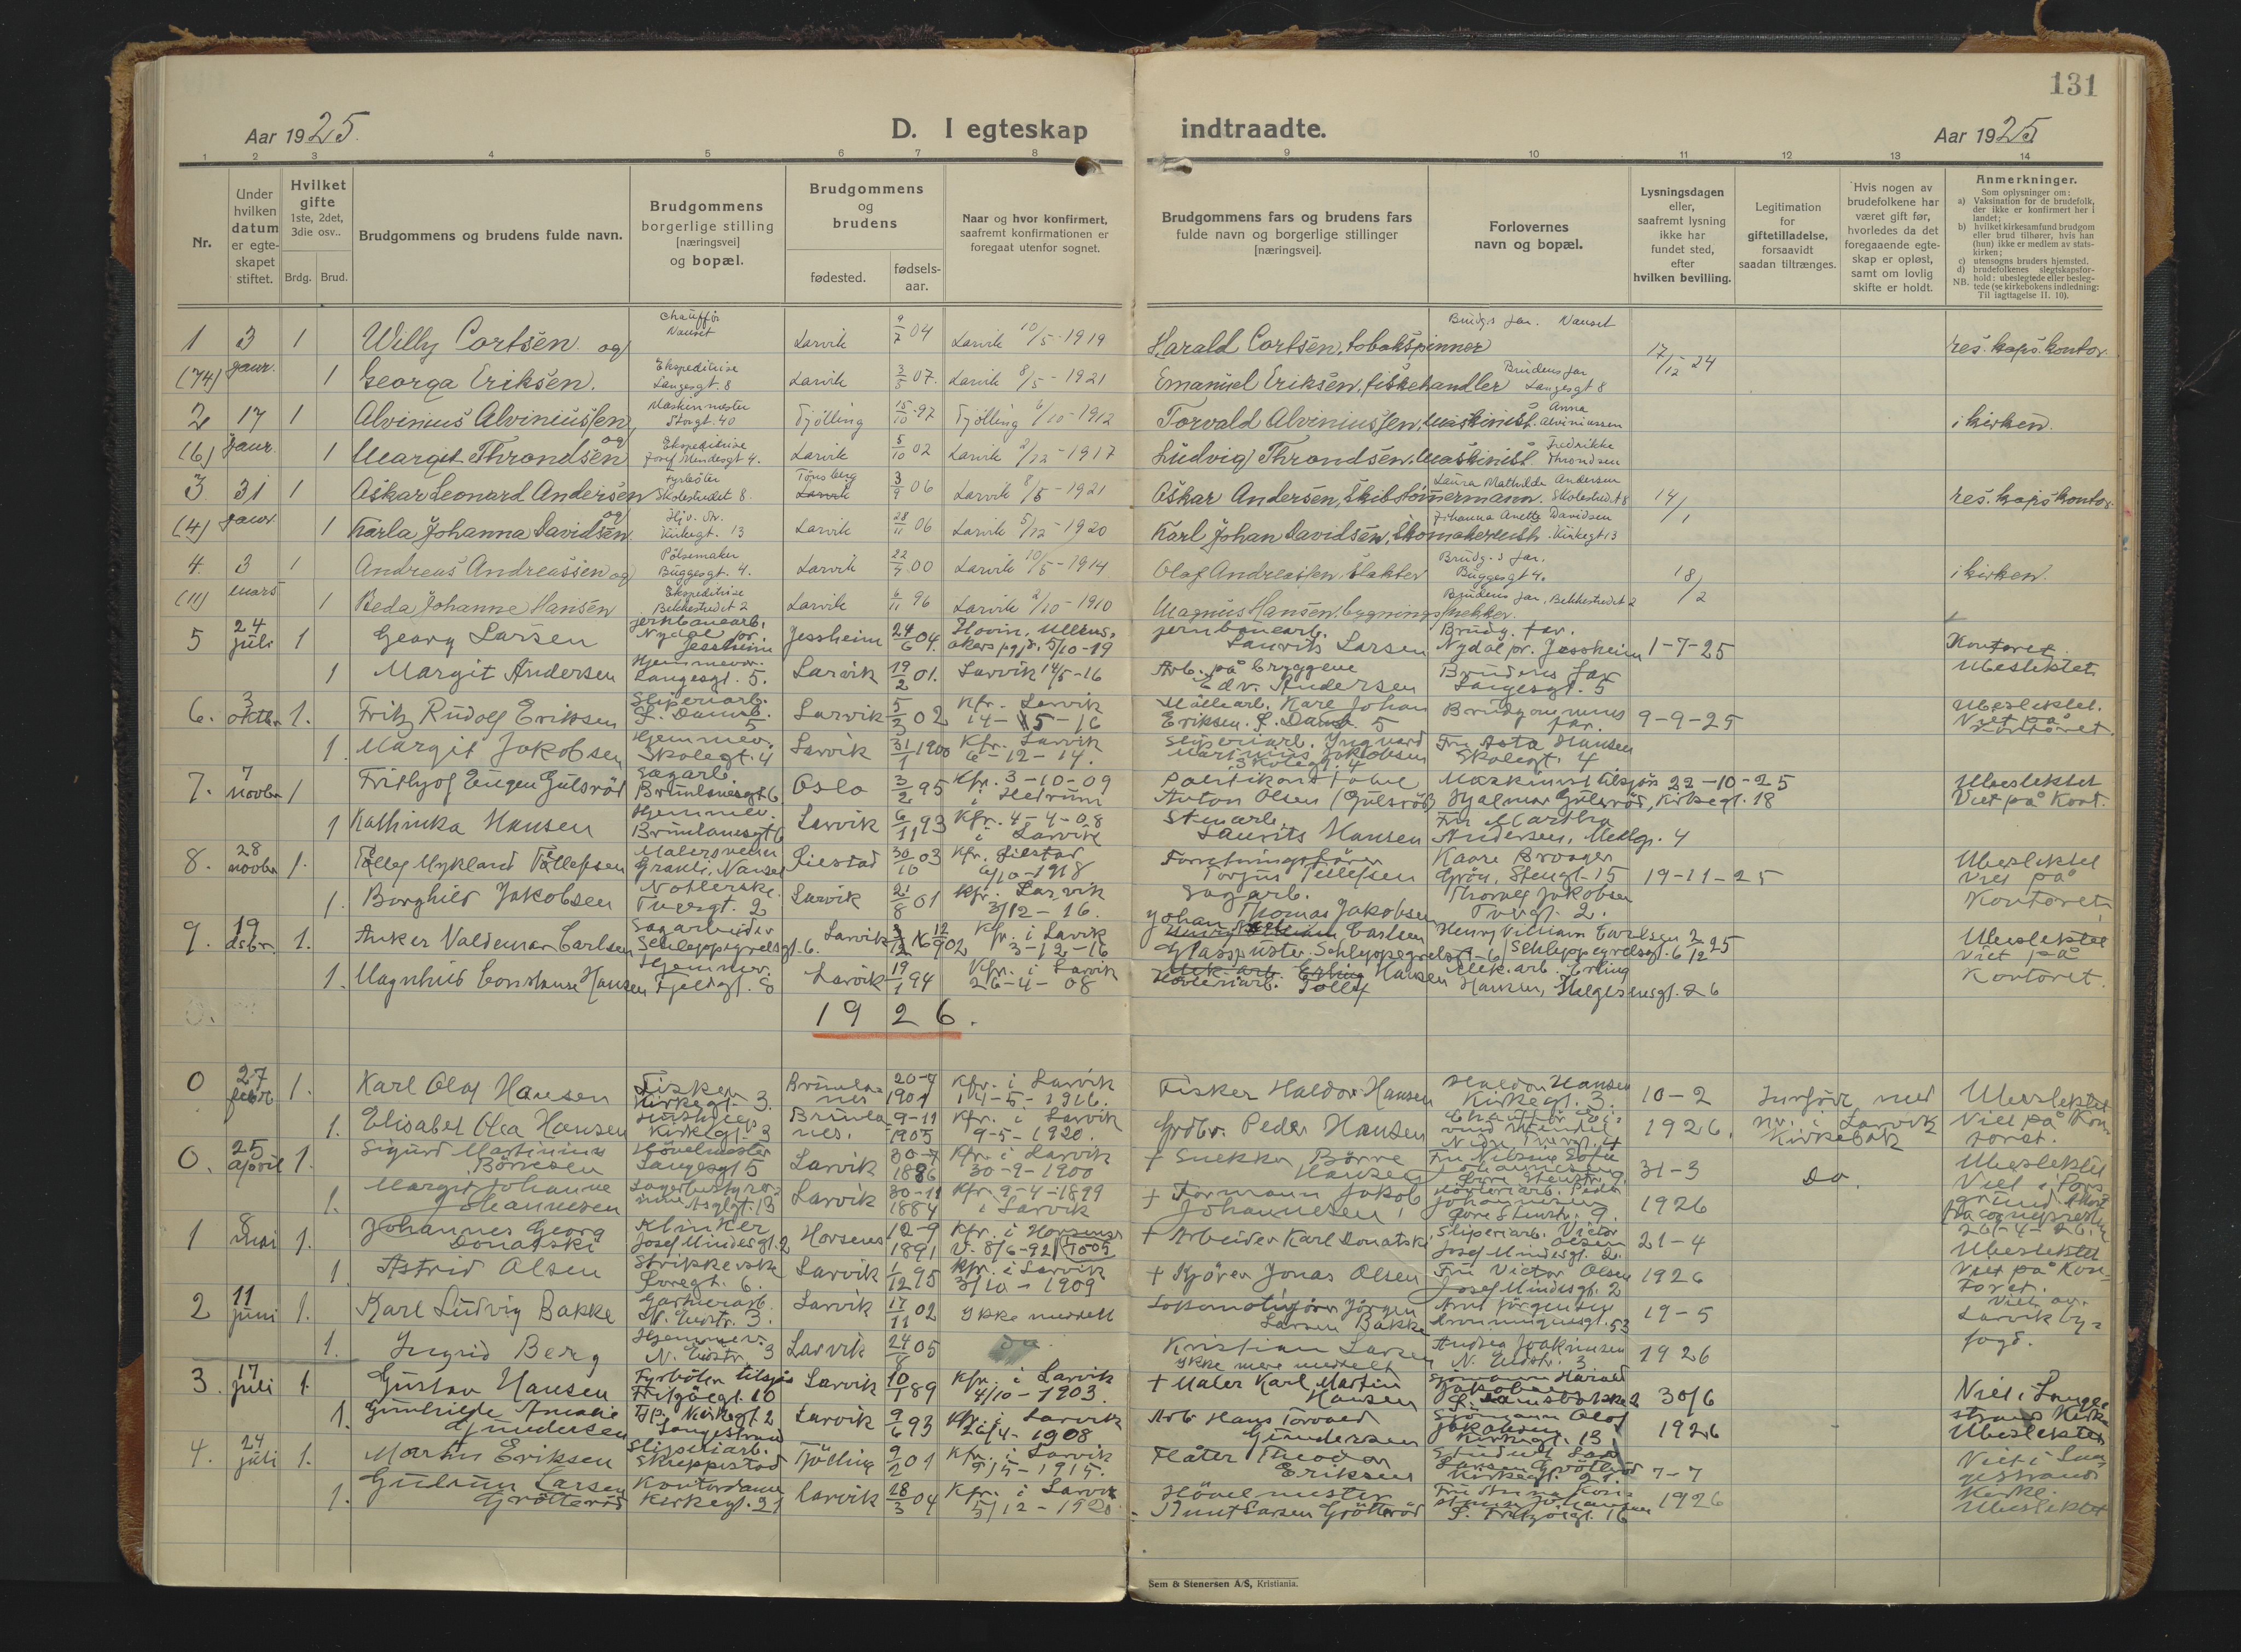 131
Aar 1925.
D. I egteskap indtraadte.
Aar 1925
1 2 3 4 5 6 7 8 9 10 11 12 13 14
Nr.
Under hvilken datum er egte-skapet stiftet.
Hvilket gifte 1ste, 2det, 3die osv..
Brdg. Brud.
Brudgommens og brudens fulde navn.
Brudgommens borgerlige stilling [næringsvei] og bopæl.
Brudgommens og brudens
fødested.
fødsels-aar.
Naar og hvor konfirmert, saafremt konfirmationen er foregaat utenfor sognet.
Brudgommens fars og brudens fars fulde navn og borgerlige stillinger [næringsvei].
Forlovernes navn og bopæl.
Lysningsdagen eller, saafremt lysning ikke har fundet sted, efter hvilken bevilling.
Legitimation for giftetilladelse, forsaavidt saadan tiltrænges.
Hvis nogen av brudefolkene har været gift før, hvorledes da det foregaaende egte-skap er opløst, samt om lovlig skifte er holdt.
Anmerkninger.
Som oplysninger om:
a) Vaksination for de brudefolk, der ikke er konfirmert her i landet;
b) hvilket kirkesamfund brudgom eller brud tilhører, hvis han (hun) ikke er medlem av stats-kirken;
c) utensogns bruders hjemsted.
d) brudefolkenes slegtskapsfor-hold: ubeslegtede eller besleg-tede (se kirkebokens indledning:
NB. Til iagttagelse II. 10).
1 3 jaur. 1 Willy Cortsen og Chauffør Nanset Larvik 9/7 04 Larvik 10/5-1919 Harald Cortsen, tobakspinner Brudg.s far. Nanset 17/12 24 res. kaps. kontor.
(74) 1 Georga Eriksen. Ekspeditrise Langesgt. 8 Larvik 3/5 07. Larvik 8/5-1921 Emanuel Eriksen, fiskehandler Brudens far Langesgt 8
2 17 jaur. 1 Alvinius Alviniussen og Maskinmester Storgt. 40 Tjølling 15/10 97 Tjølling 6/10-1912 Torvald Alviniussen, maskinist. Anna Alviniussen i kirken.
(6) 1 Margit Throndsen Ekspeditrise Josef Mindesgt 4. Larvik 5/10 02 Larvik 2/12-1917 Ludvig Throndsen, maskinist. Fredrikke Throndsen
3 31 jaur. 1 Oskar Leonard Andersen og Fyrbøter Skolestredet 8. Tønsberg Larvik 3/9 06 Larvik 8/5-1921 Oskar Andersen, skibstømmermann. Laura Mathilde Andersen Skolestredet 8 14/1 res. kaps kontor.
(4) 1 Karla Johanna Davidsen Kirkegt. 13 Larvik 28/11 06 Larvik 5/12-1920 Karl Johan Davidsen, Johanna Anette Davidsen Kirkegt 13
4. 3 mars 1 Andreas Andreassen og Pølsemaker Buggesgt. 4. Larvik 22/7 00 Larvik 10/5-1914 Olaf Andreassen, slakter Brudg.s far. Buggesgt 4. 18/2 i kirken.
(11) 1 Beda Johanne Hansen Ekspeditrise Bekkestredet 2 Larvik 6/11 96 Larvik 2/10-1910 Magnus Hansen, bygningssnekker. Brudens far, Bekkestredet 2
5 24 juli 1 Georg Larsen jernbanearb. Nydal pr. Jessheim Jessheim 24/6 04. Hovin, Ullens-akers 5/10-19 jernbanearb. Laurits Larsen Brudg. far. Nydal pr. Jessheim 1-7-25 Kontoret Ubeslektet
1 Margit Andersen Hjemmev. Langesgt. 5. Larvik 19/2 01. Larvik 14/5-16 Arb. på bryggene Edv. Andersen Brudens far Langesgt. 5
6. 3 oktbr 1. Fritz Rudolf Eriksen Sliperiarb. 5 Larvik 5/3 02 Kfr. Larvik 14-5-16 Karl Johan Eriksen. Brudgommens far. 9-9-25 Ubeslektet. Viet på Kontoret.
1. Margit Jakobsen Hjemmev. Skolegt. 4 Larvik 31/1 1900 Kfr. Larvik 6-12-14. Sliperiarb. Yngvard Marinius Jakobsen Skolegt. 4 Fru Asta Hansen Skolegt. 4
7. 7 novbr 1 Frithjof Eugen Gulsröd Sagarb. Brunlanesgt 6 Oslo 3/2 95 Kfr. 3-10-09 i Hedrum Politikonstabel Anton Olsen (Gulsröd) Maskinist tilsjøs Hjalmar Gulsröd, Kirkegt. 18 22-10-25 Ubeslektet Viet på Kont.
1 Kathinka Hansen Hjemmev. Brunlanesgt 6 Larvik 6/11 93 Kfr. 4-4-08 i Larvik Stenarb. Laurits Hansen Fru Martha Andersen, Mellgt. 4
8. 28 novbr 1. Tolleg Mykland Tollefsen Malersvenn Nanset Gjestad 30/10 03 Kfr. Gjestad 6/10-1918 Forretningsfører Torjus Tellefsen Kaare Grön, Stengt. 15 19-11-25 Ubeslektet Viet på Kontoret.
1. Borghild Jakobsen 2 Larvik 21/8 01 Kfr. Larvik 3/12-16. Sagarb. Thomas Jakobsen Thorolf Jakobsen 2.
9. 19 desbr. 1. Anker Valdemar Carlsen Sagarbeider Schleppegrelsgt. 6. Larvik 12/9 02 Kfr. i Larvik 3-12-16 Johan Carlsen Glasspuster. Schleppegrelsgt-6 Henry Villiam Carlsen Schleppegrelsgt. 6 2/12 25 Ubeslektet Viet på Kontoret.
1. Magnhild Constanse Hansen Hjemmev. Fjeldgt. 8 Larvik 19/1 94 Kfr. i Larvik 26-4-08 Høvleriarb. Tollef Hansen Mek. arb. Erling Hansen, Helgesensgt. 26
1926.
0 27 febr. 1. Karl Olaf Hansen Fisker Kirkegt. 3. Brunla-nes 20-7 1901 Kfr. i Larvik 14-5-1916. Fisker Haldor Hansen Haldor Hansen Kirkegt. 3. 10-2 Innført med nr. i Larvik Kirkebok Ubeslektet Viet på Kon-toret.
1. Elisabet Olea Hansen Kirkegt. 3 Brunla-nes. 9-11 1905 Kfr. i Larvik 9-5-1920. Grdbr. Peder Hansen 1926.
0. 25 april 1. Sigurd Martinius Börresen Hövelmester Langesgt 5 Larvik 30-7 1886 Kfr. i Larvik 30-9-1900 + Snekker Börre Hansen Fru Nilsine Sofie Johannesen 31-3 Do. Ubeslektet Viet i Pors-grund
1. Margit Johanne Johannesen 13 Larvik 30-11 1884 Kfr. 9-4-1899 i Larvik + Formann Jakob Johannesen Høvleriarb. Peder Johannesen 9. 1926 26-4-26.
1 8 mai 1. Johannes Georg Donatski Klinker Josef Mindesgt. 2 Horsens 12-9 1891 Kfr. i Horsens + Arbeider Karl Donatski, Sliperiarb. Victor Olsen Josef Mindesgt. 2. 21-4 Ubeslektet Viet på Kon-toret.
1. Astrid Olsen Strikkerske 6. Larvik 1/12 95 Kfr. i Larvik 3/10-1909 + Kjører Jonas Olsen Fru Victor Olsen Josef Mindesgt. 2 1926
2 11 juni 1. Karl Ludvig Bakke 3. Larvik 17/11 02 Ikke meddelt Lokomotivfører Jørgen Larsen Bakke Arnt Jörgensen 53 19-5 Viet av Larvik by-fogd.
1. Ingrid Berg Hjemmev. 3 Larvik 24/8 05 do Kristian Larsen Ikke mere meddelt Andrea Joakimsen 3. 1926
3. 17 juli 1. Gustav Hansen Fyrbøter tilsjøs 10 Larvik 10/1 89 Kfr. i Larvik 4/10-1903. + Maler Karl Martin Hansen Sjømann Harald Jakobsen 30/6 Viet i Lange-strand Kirke Ubeslektet
1. Gunhilde Amalie Gundersen Kirkegt. 2 Langestrand Larvik 9/6 93 Kfr. i Larvik 26/4-1908 Arb Hans Torvald Gundersen Sjömann Olaf Jakobsen Kirkegt. 13 1926
4. 24 juli 1. Martin Eriksen Sliperiarb. Skreppestad Tjölling 9/2 01 Kfr. i Larvik 9/5-1915. Flåter Theodor Eriksen Larsen Grötteröd Kirkegt. 21. 7-7 Viet i Lan-gestrand Kirke. Ubeslektet
1. Gudrun Larsen Grötteröd Kontordame Kirkegt. 21 Larvik 18/3 04 Kfr. i Larvik 5/12-1920. Hövelmester Knut Larsen Grötteröd Fru Anna Kon-stanse Johansen 16 1926
Sem & Stenersen A/S, Kristiania.